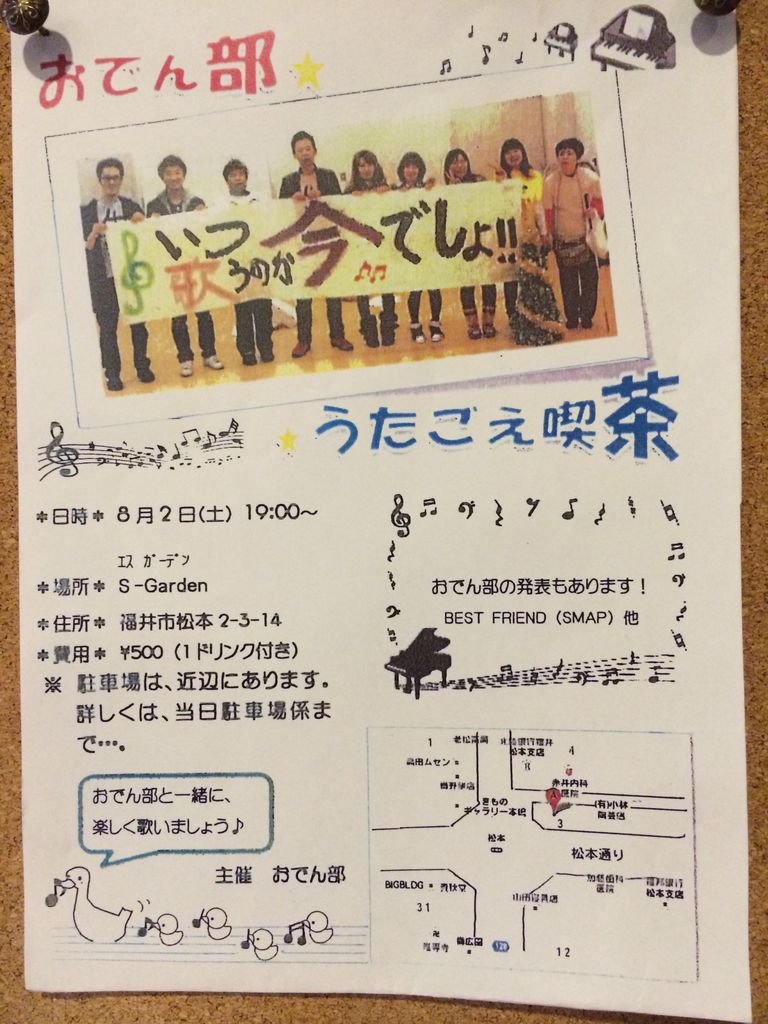 おでん部
いつ歌うのか今でしょ!!
うたごえ喫茶
*日時* 8月2日(土) 19:00~
エス ガーデン
*場所* S-Garden
*住所* 福井市松本 2-3-14
*費用* ¥500 (1ドリンク付き)
※ 駐車場は、近辺にあります。
詳しくは、当日駐車場係ま
で…。
おでん部の発表もあります!
BEST FRIEND (SMAP) 他
おでん部と一緒に、
楽しく歌いましょう♪
主催 おでん部
1
4
松本支店
高田ムセン
赤井内科
医院
A
きもの
ギャラリー本郷
(有)小林
3
松本
松本通り
BIGBLDG
31
医院
松本支店
12